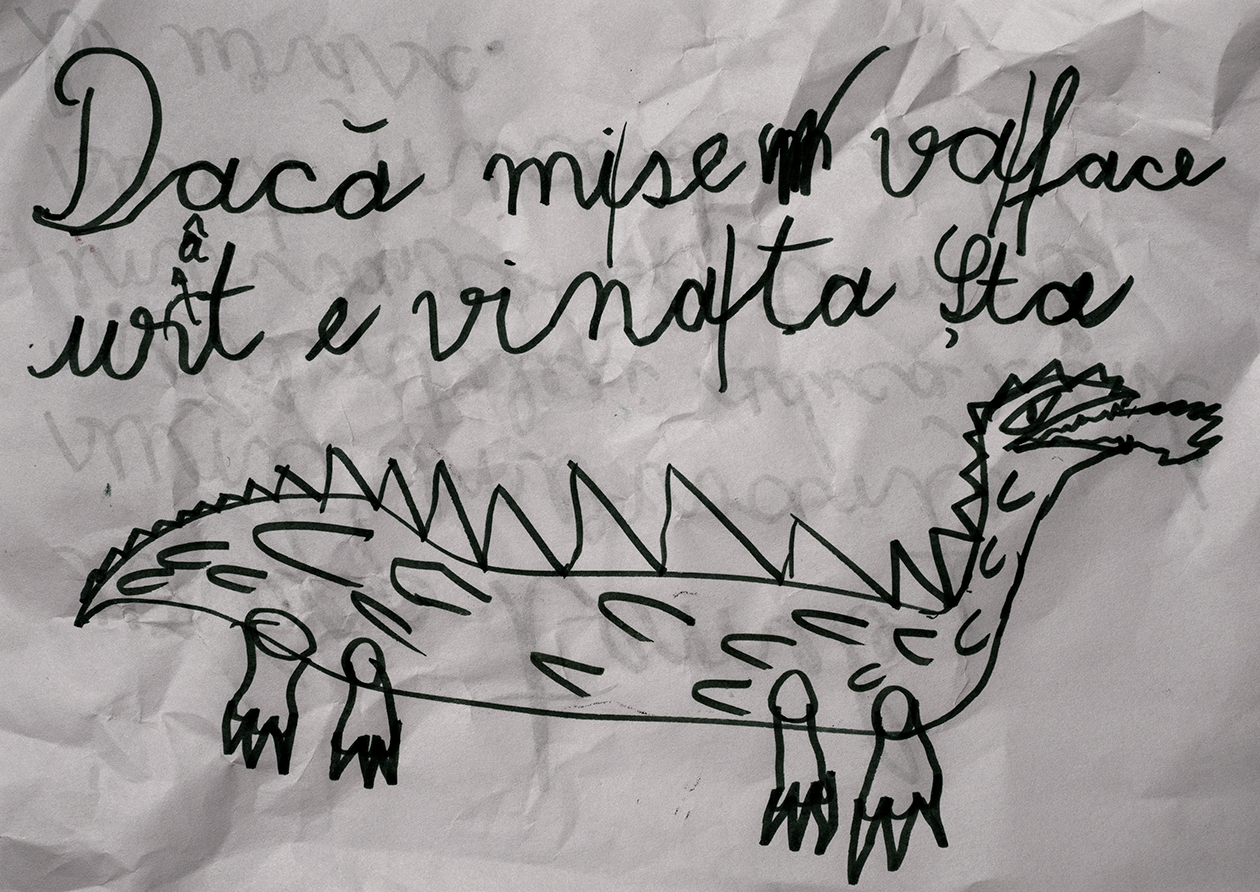 Dacă mi/se va/face
urât e vina/ta Șta